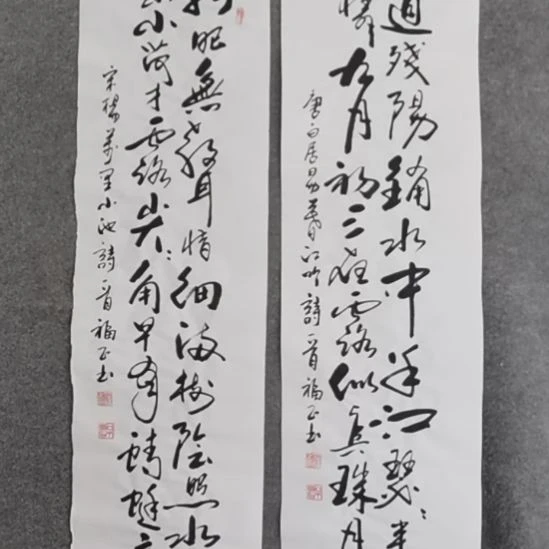 道殘陽鋪水中半江瑟々半
憐九月初三夜露似真珠月
唐白居易暮江吟詩一首福正書
眼無聲惜細流樹陰照水
小荷才露尖々角早有蜻蜓立
宋楊萬里小池詩一首福正書